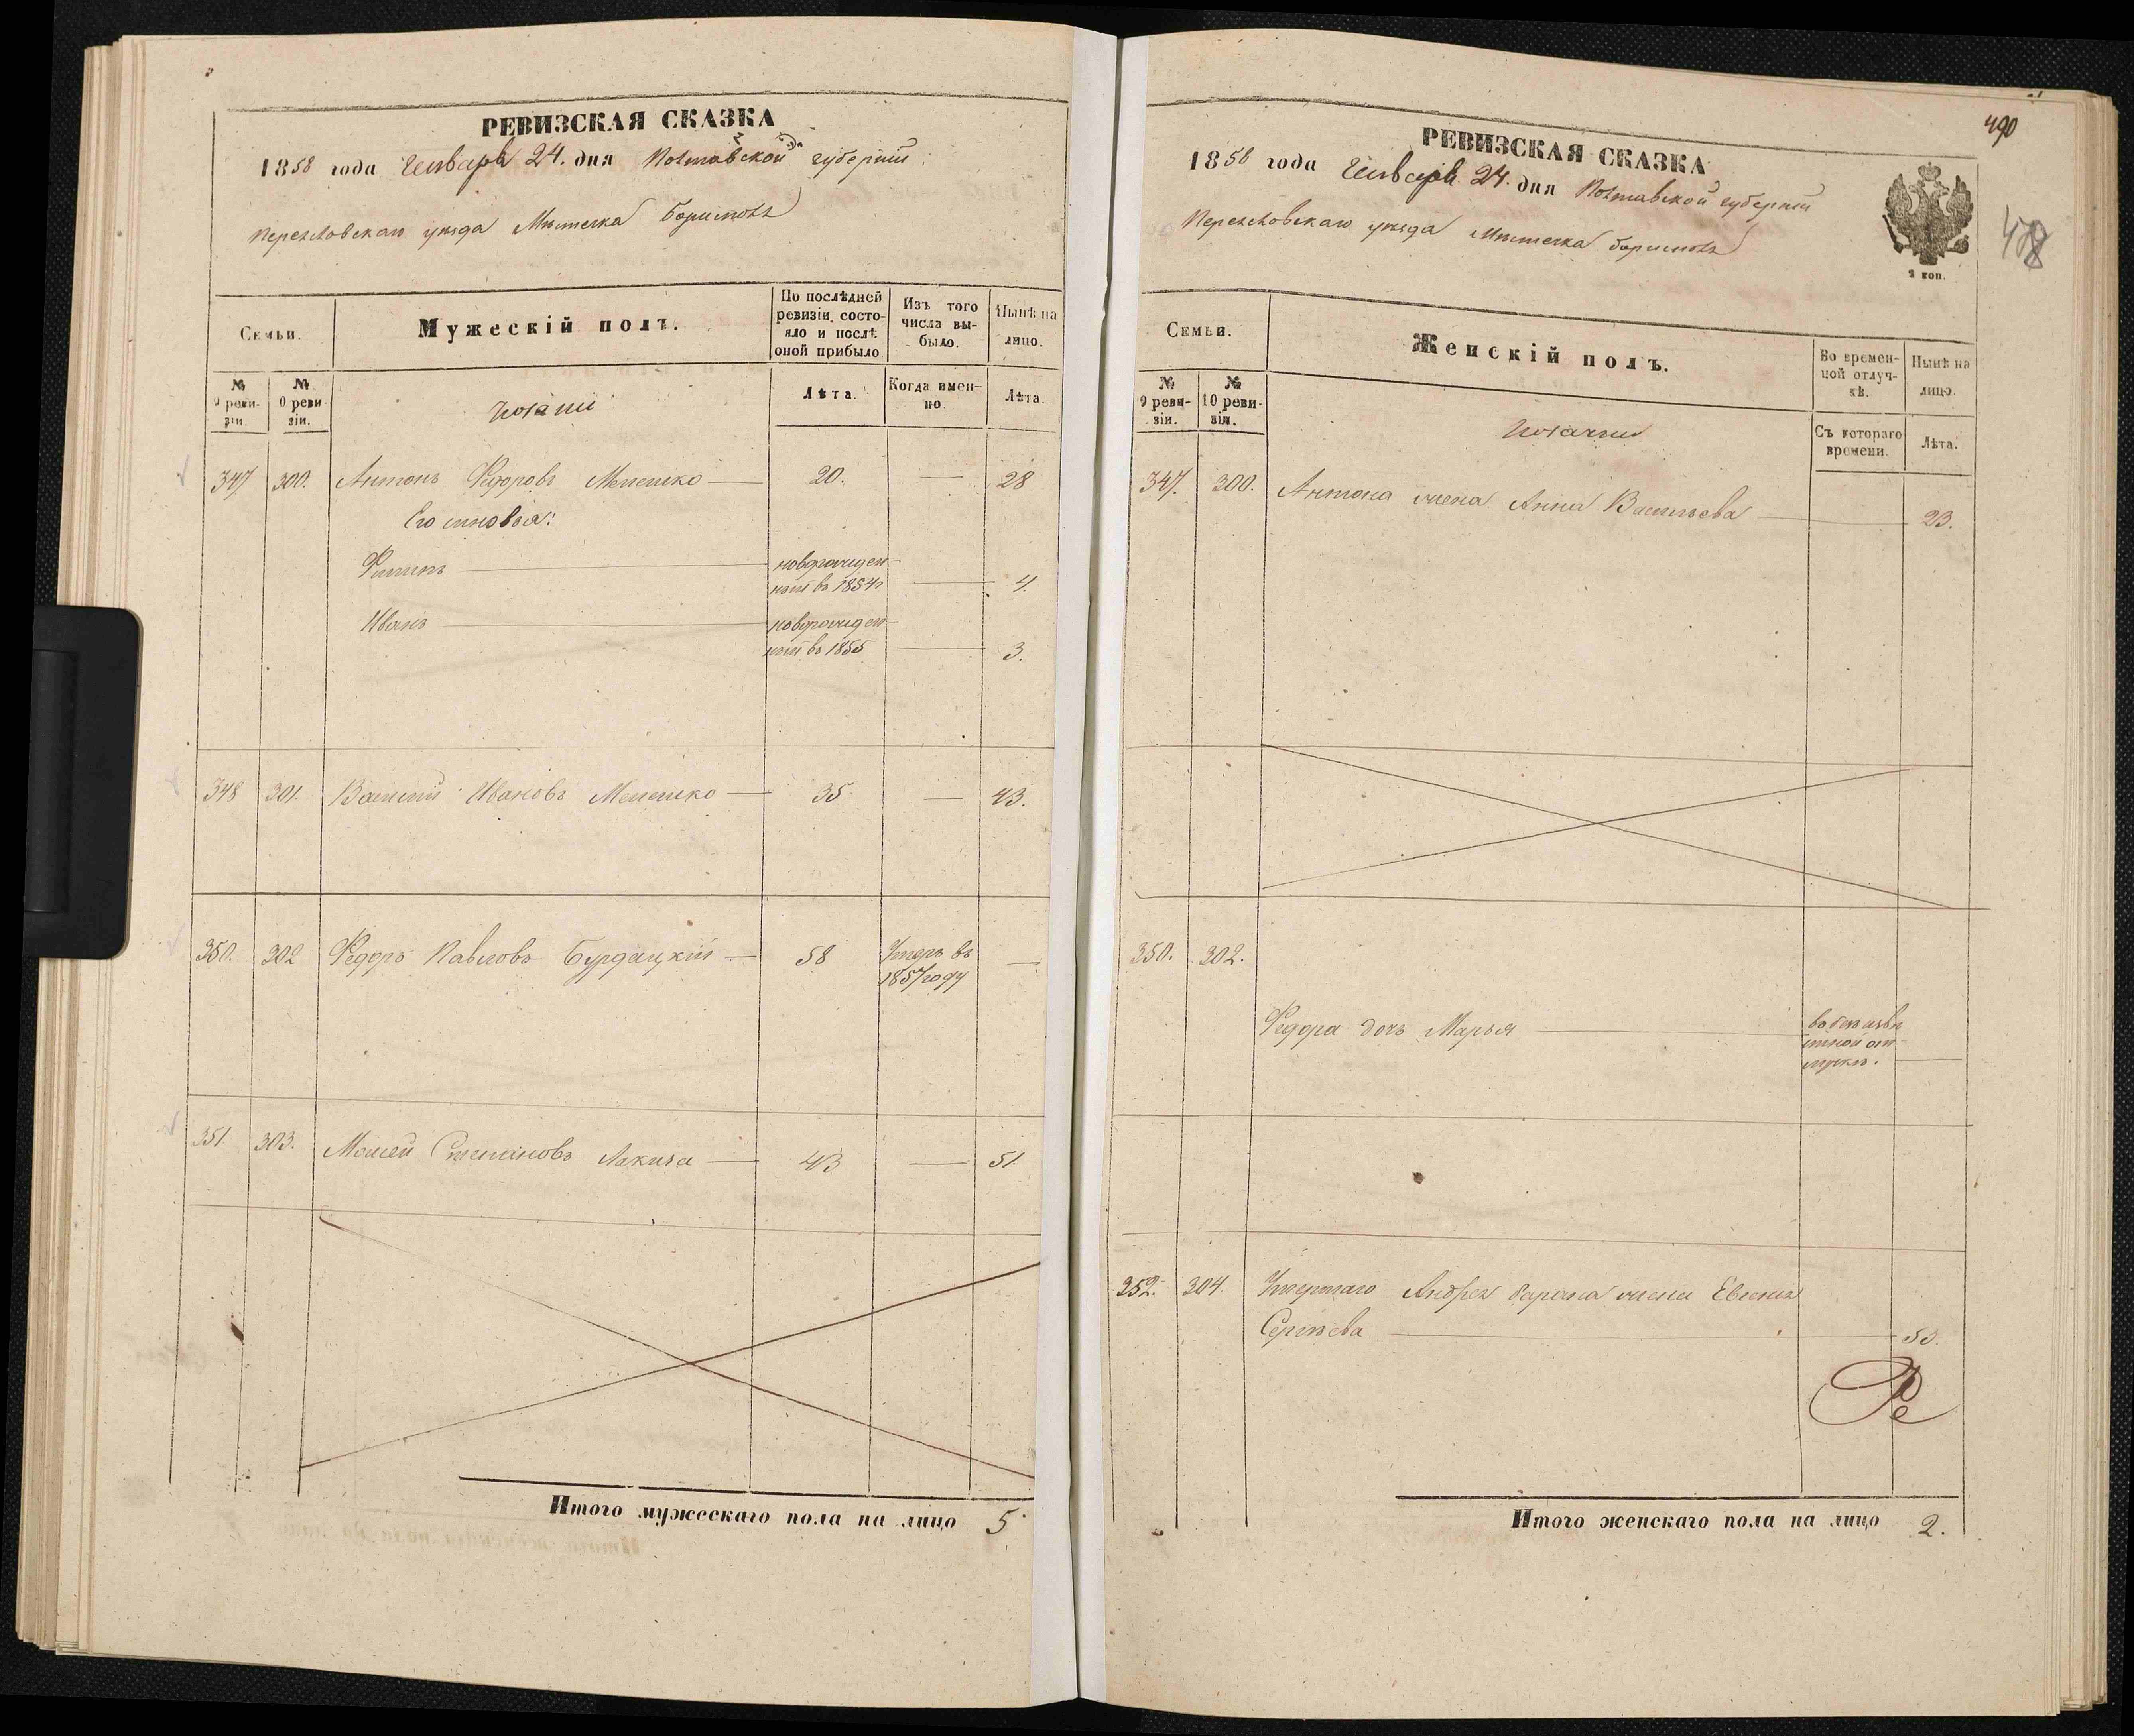 РЕВИЗСКАЯ СКАЗКА
1858 года Генваря 24. дня Полтавской губернии
Переяславскаго уезда Местечка Борисполя
Семьи.
Мужескій полъ.
По послѣдней ревизіи состояло и послѣ оной прибыло
Изъ того числа выбыло.
Нынѣ на лицо.
№ 9 ревизіи.
№ 10 ревизіи.
Козаки
Лѣта.
Когда именно.
Лѣта.
347 300. Антонъ Федоровъ Мелешко — 20. — 28
Его сыновья:
Филипъ — новорожден-
ный въ 1854г — 4.
Иванъ — новорожден-
ный въ 1855 — 3.
348 301. Василій Ивановъ Мелешко — 35 — 43.
350. 302 Федоръ Павловъ Бурдацкій — 58 Умеръ въ —
1857 году
351. 303. Моисей Степановъ — 43 — 51.
Итого мужескаго пола на лицо 5.
490
РЕВИЗСКАЯ СКАЗКА
1858 года Генваря 24. дня Полтавской губерніи
Переяславскаго уезда Местечка Борисполя
2 коп.
Семьи.
Женскій полъ.
Во временной отлучкѣ.
Нынѣ на лицо.
№ 9 ревизіи.
№ 10 ревизіи.
Козачки
Съ котораго времени.
Лѣта.
347. 300. Антона жена Анна Васильева — 23.
350. 302.
Федора дочь Марья — въ безъизвѣ
стной от-
лучкѣ. —
352. 304. Умершаго Андрея жена Евгенія
Сергѣева —
Итого женскаго пола на лицо 2.